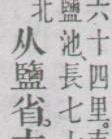 六十四里
鹽池、長七
北
从鹽省。